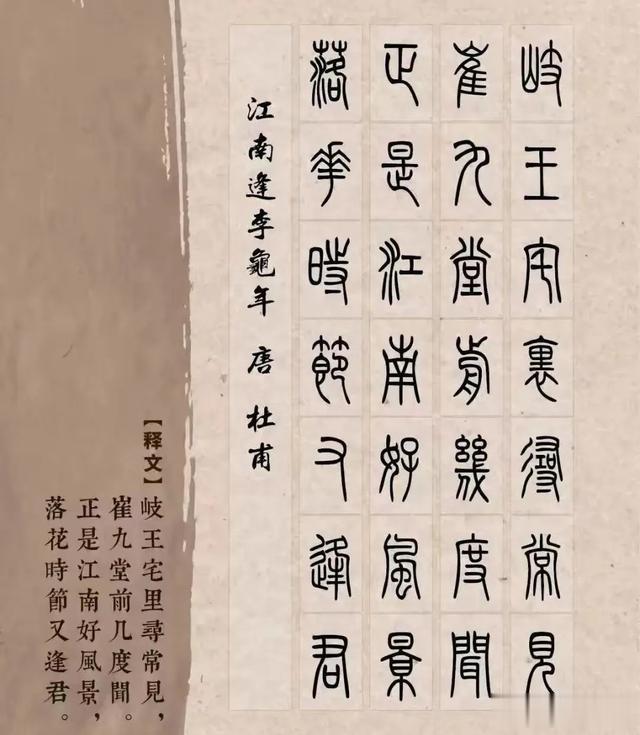 岐王宅裏尋常見
崔九堂前幾度聞
正是江南好風景
落花時節又逢君
江南逢李龜年 唐 杜甫
【释文】岐王宅里尋常見，
崔九堂前几度聞。
正是江南好風景，
落花時節又逢君。